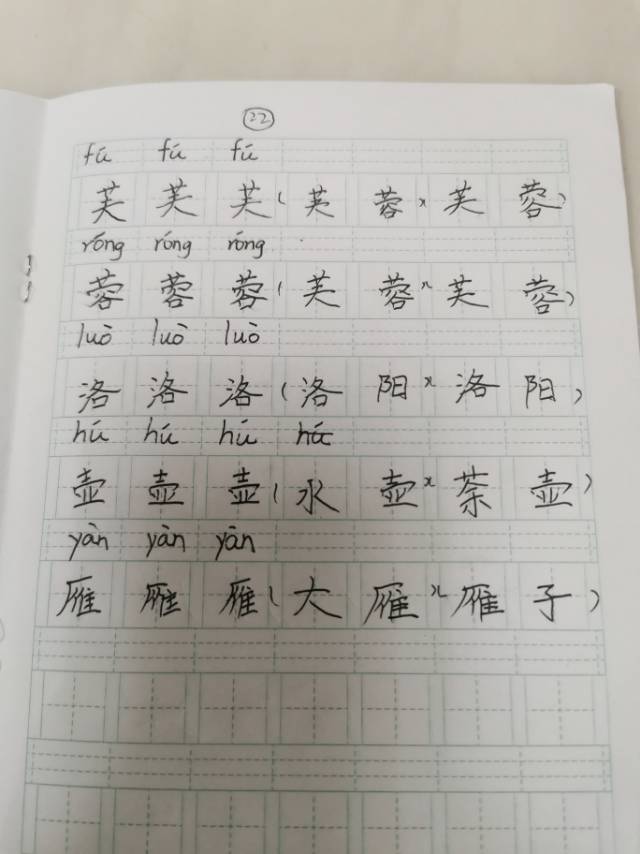 22
fú fú fú
芙 芙 芙 ( 芙 蓉 x 芙 蓉 )
róng róng róng
蓉 蓉 蓉 ( 芙 蓉 x 芙 蓉 )
luò luò luò
洛 洛 洛 ( 洛 阳 x 洛 阳 )
hú hú hú hú
壶 壶 壶 ( 水 壶 x 茶 壶 )
yàn yàn yàn
雁 雁 雁 ( 大 雁 x 雁 子 )